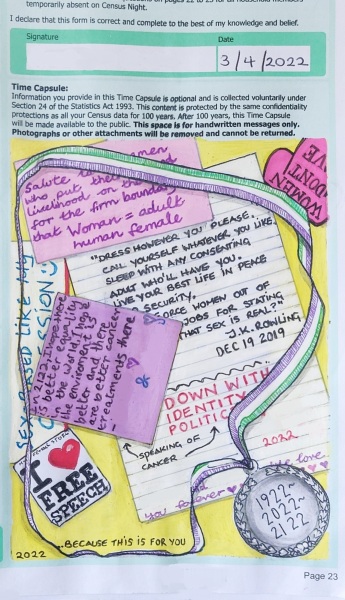 temporarily absent on Census Night.
I declare that this form is correct and complete to the best of my knowledge and belief.
Signature
Date
3/4/2022
Time Capsule:
Information you provide in this Time Capsule is optional and is collected voluntarily under
Section 24 of the Statistics Act 1993. This content is protected by the same confidentiality
protections as all your Census data for 100 years. After 100 years, this Time Capsule
will be made available to the public. This space is for handwritten messages only.
Photographs or other attachments will be removed and cannot be returned.
Salute the women
who put their
Livelihood on the
for the firm boundary
that Woman = adult
human female
WOMEN
DON'T
"DRESS HOWEVER YOU PLEASE.
CALL YOURSELF WHATEVER YOU LIKE.
SLEEP WITH ANY CONSENTING
ADULT WHO'LL HAVE YOU.
LIVE YOUR BEST LIFE IN PEACE
SECURITY.
FORCE WOMEN OUT OF
JOBS FOR STATING
THAT SEX IS REAL?"
J.K. ROWLING
DEC 19 2019
In 2122, I hope there
is better equality
in the world, I hope
the environment is
better and there
are better cancer
treatments there
&
DOWN WITH
IDENTITY
POLITIC
SPEAKING OF
CANCER
2022
love
you forever
I
FREE
SPEECH
1922~
2022~
2122
2022
...BECAUSE THIS IS FOR YOU
Page 23